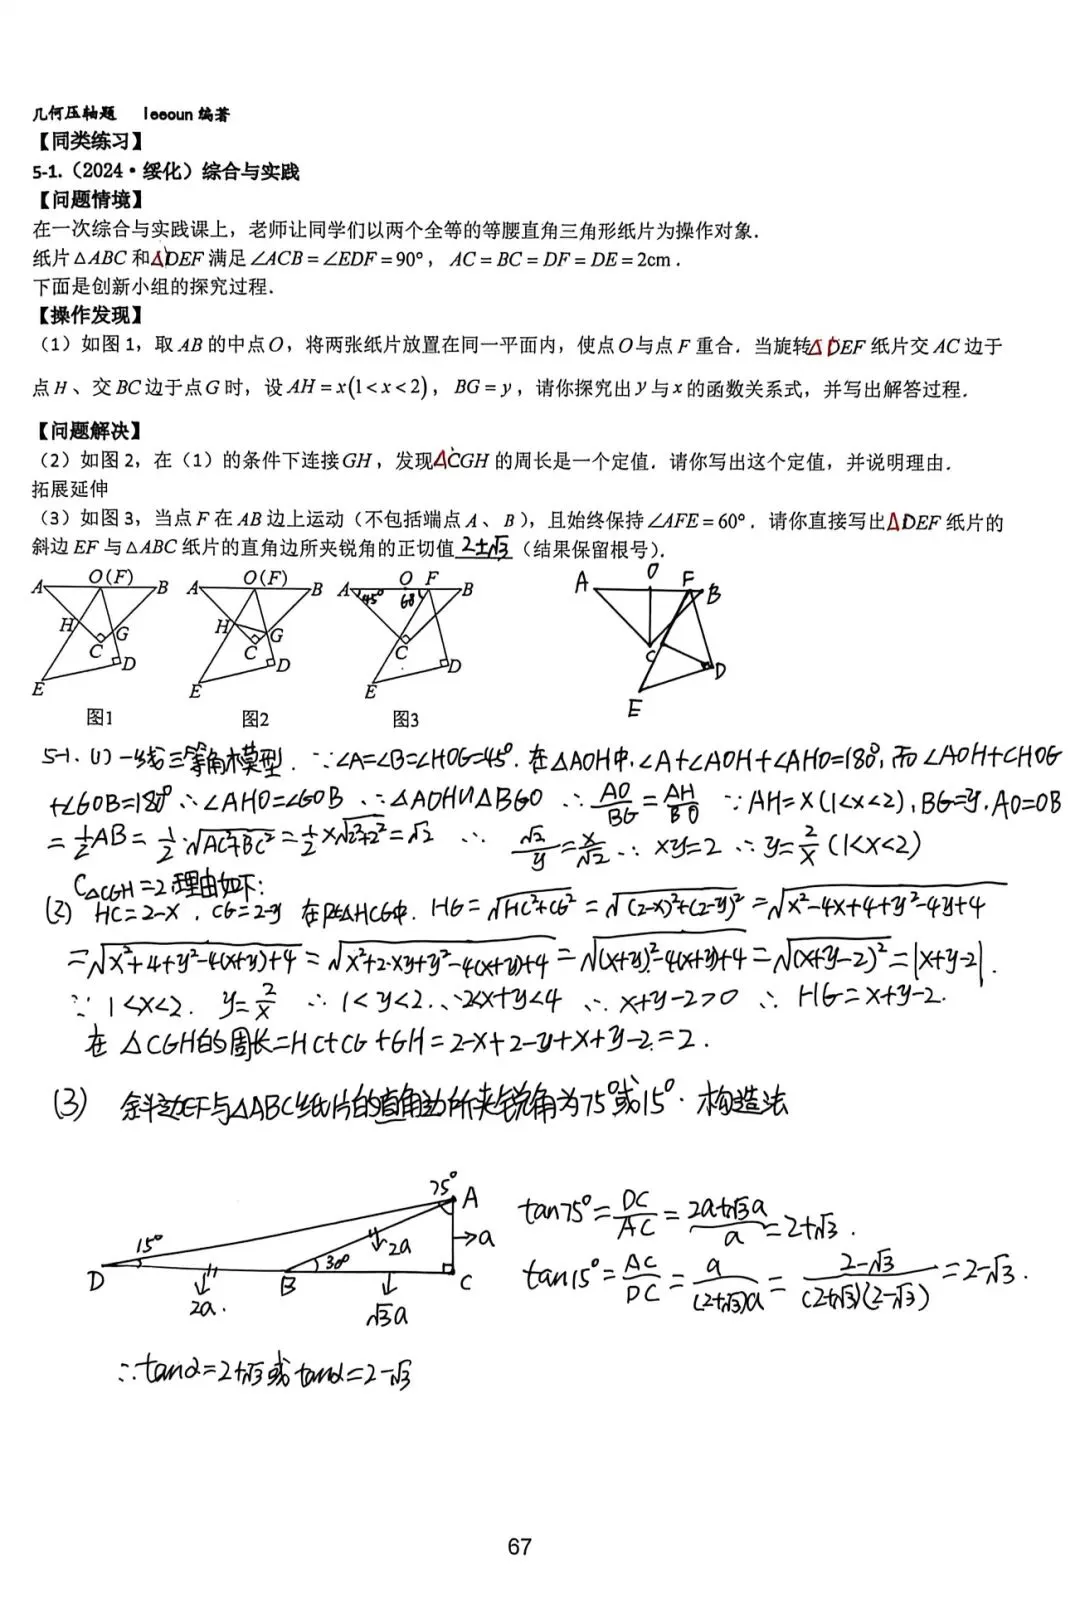 几何压轴题 leeoun 编著
【同类练习】
5-1.（2024·绥化）综合与实践
【问题情境】
在一次综合与实践课上，老师让同学们以两个全等的等腰直角三角形纸片为操作对象.
纸片△ABC和△DEF满足∠ACB=∠EDF=90°，AC=BC=DF=DE=2cm.
下面是创新小组的探究过程.
【操作发现】
（1）如图1，取AB的中点O，将两张纸片放置在同一平面内，使点O与点F重合.当旋转△DEF纸片交AC边于
点H、交BC边于点G时，设AH=x(1<x<2)，BG=y，请你探究出y与x的函数关系式，并写出解答过程.
【问题解决】
（2）如图2，在（1）的条件下连接GH，发现△CGH的周长是一个定值.请你写出这个定值，并说明理由.
拓展延伸
（3）如图3，当点F在AB边上运动（不包括端点A、B），且始终保持∠AFE=60°.请你直接写出△DEF纸片的
斜边EF与△ABC纸片的直角边所夹锐角的正切值 2±√3 （结果保留根号）.
A O(F) B H G C D E
图1
A O(F) B H G C D E
图2
A 45° O F 60° B C D E
图3
A O F B C D E
5-1. (1) 一线三等角模型. ∵∠A=∠B=∠HOG=45°. 在△AOH中,∠A+∠AOH+∠AHO=180°,而∠AOH+∠HOG
+∠GOB=180° ∴∠AHO=∠GOB ∴△AOH∽△BGO ∴AO/BG=AH/BO ∵AH=x(1<x<2),BG=y.AO=OB
=1/2AB=1/2·√AC²+BC²=1/2×√2²+2²=√2 ∴ √2/y=x/√2 ∴ xy=2 ∴y=2/x (1<x<2)
C△CGH=2.理由如下:
(2) HC=2-x, CG=2-y 在Rt△HCG中. HG=√HC²+CG²=√(2-x)²+(2-y)²=√x²-4x+4+y²-4y+4
=√x²+4+y²-4(x+y)+4=√x²+2·xy+y²-4(x+y)+4=√(x+y)²-4(x+y)+4=√(x+y-2)²=|x+y-2|.
∵ 1<x<2. y=2/x ∴ 1<y<2 ∴2<x+y<4 ∴ x+y-2>0 ∴ HG=x+y-2.
在△CGH的周长=HC+CG+GH=2-x+2-y+x+y-2=2.
(3) 斜边EF与△ABC纸片的直角边所夹锐角为75°或15°. 构造法
75° A
15° 30° 2a →a
D B C
2a. √3a
tan75°=DC/AC=2a+√3a/a=2+√3.
tan15°=AC/DC=a/(2+√3)a=2-√3/(2+√3)(2-√3)=2-√3.
∴tanα=2+√3或tanα=2-√3
67